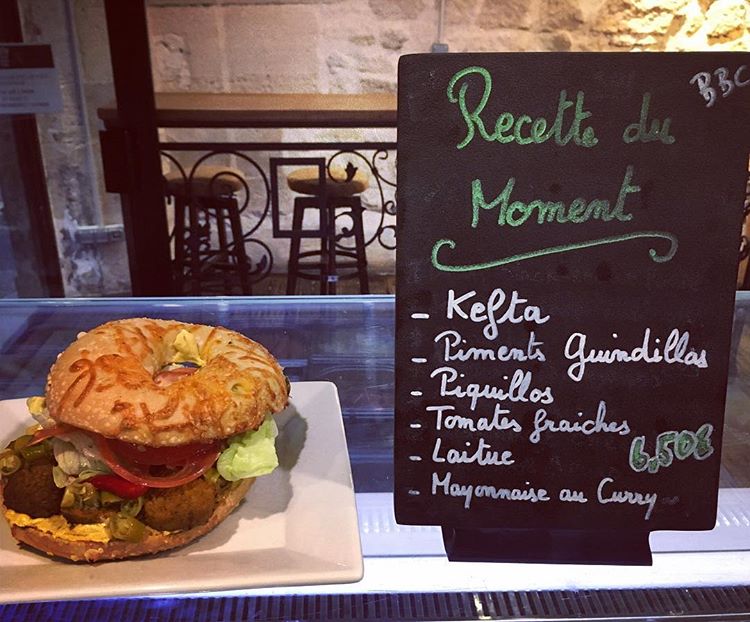 BBC
Recette du
Moment
- Kefta
- Piments Guindillas
- Piquillos
- Tomates fraiches
- Laitue
6,50€
- Mayonnaise au Curry